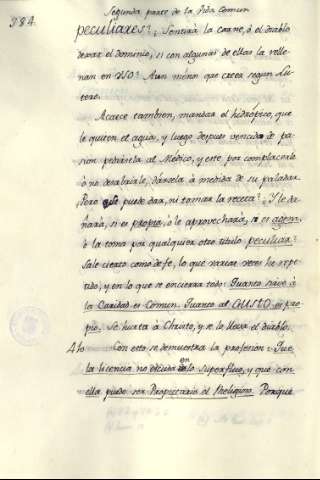 984.
Segunda parte de la Vida Comun
peculiares? ¿Sentirá la carne, ó el diablo
dexar el dominio, si con algunas de ellas la relle-
nan en uso? Aun menos que creea segun Lu-
tero.
Acaece tambien, mandar el hidrópico, que
le quiten el agua, y luego despues vencido de pa-
sion pedirsela al Médico, y este por complacerle
ó no desabrirle, dársela á medida de su paladar.
Pero ¿se puede dar, ni tomar la receta? ¿Y le da-
ñará, si es propia, ó le aprovechará, si es agena,
ó la toma por qualquier otro título peculiar?
Sale cierto como de fe, lo que varias veces he repe-
tido, y en lo que se encierra todo: Quanto hace á
la Caridad es Comun. Quanto al GUSTO es pro-
pio. Se hurta á Christo, y se lo lleva el diablo.
Con esto se demuestra la profesion: Que
la licencia no válida en lo superfluo, y que con
ella puede ser Propietario el Religioso. Porque